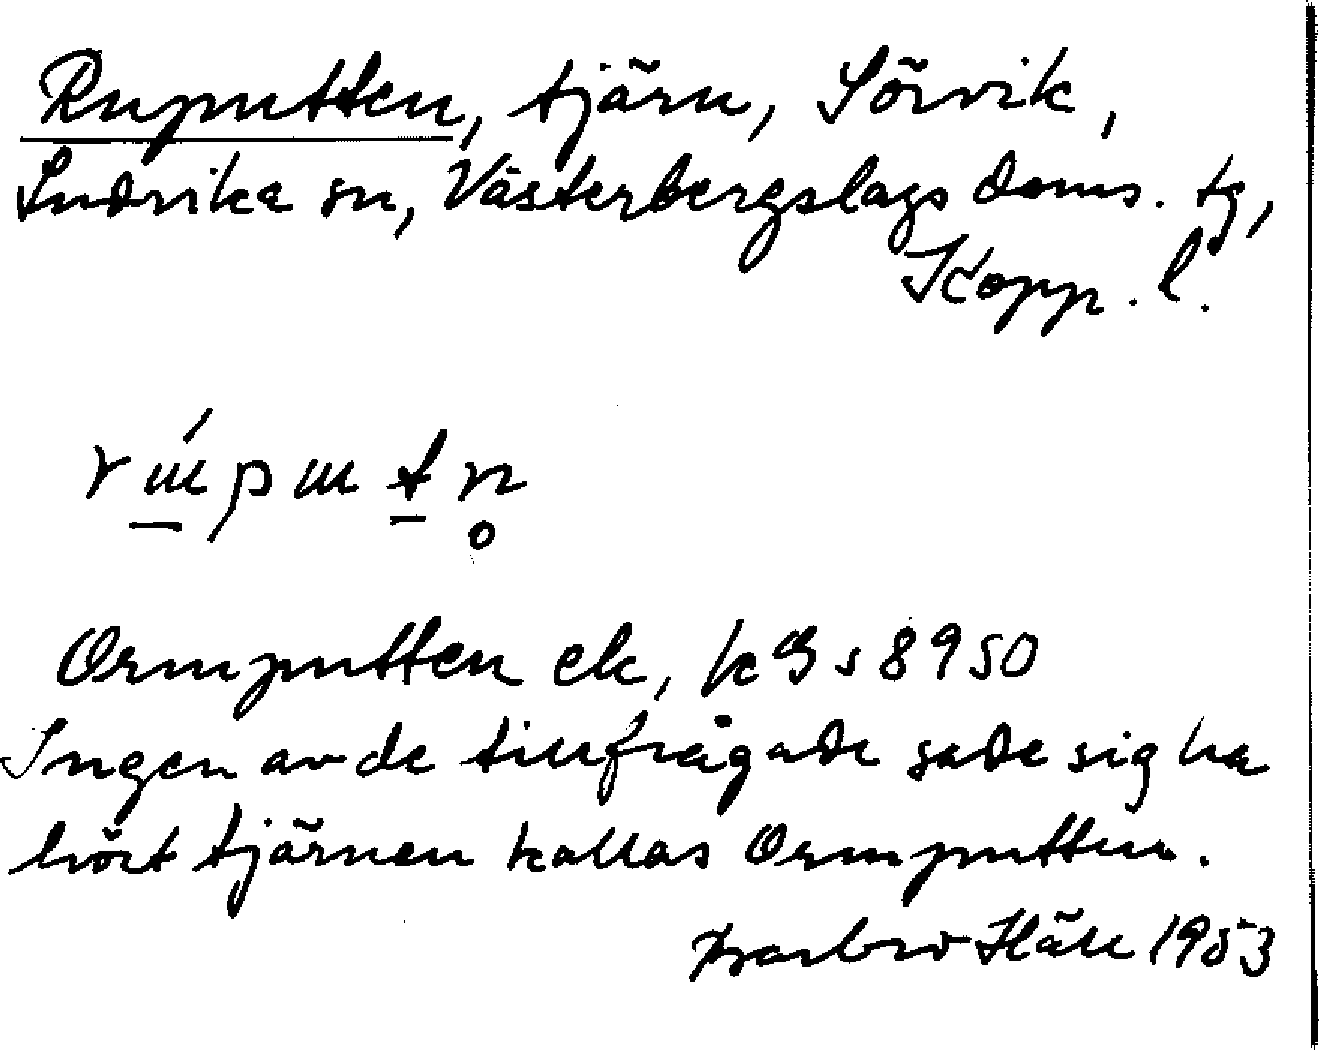 Ruputten, tjärn, Sörvik,
Ludvika sn, Västerbergslags doms. tg,
Kopp. l.
rɯ́pɯtn̥
Ormputten ek, kBs 8950
Ingen av de tillfrågade sade sig ha
hört tjärnen kallas Ormputten.
Barbro Häll 1953